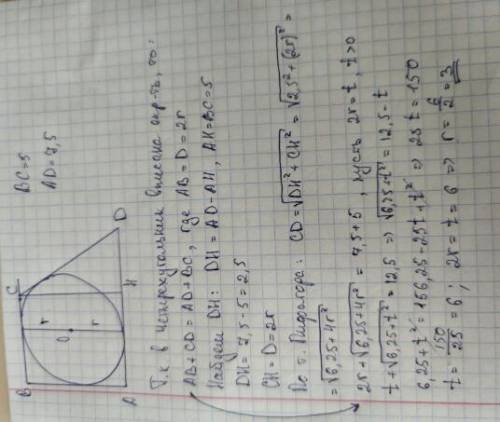 BC=5
AD=7,5
B
C
O
r
r
A
H
D
Т.к. в четырехугольник вписана окр-ть, то:
AB+CD=AD+BC, где AB=D=2r
Найдем DH: DH=AD-AH, AH=BC=5
DH=7,5-5=2,5
CH=D=2r
По т. Пифагора: CD=√(DH²+CH²)=√(2,5²+(2r)²)=
=√(6,25+4r²)
2r+√(6,25+4r²)=7,5+5, пусть 2r=t, t>0
t+√(6,25+t²)=12,5 ⇒ √(6,25+t²)=12,5-t
6,25+t²=156,25-25t+t² ⇒ 25t=150
t=150/25=6; 2r=t=6 ⇒ r=6/2=3